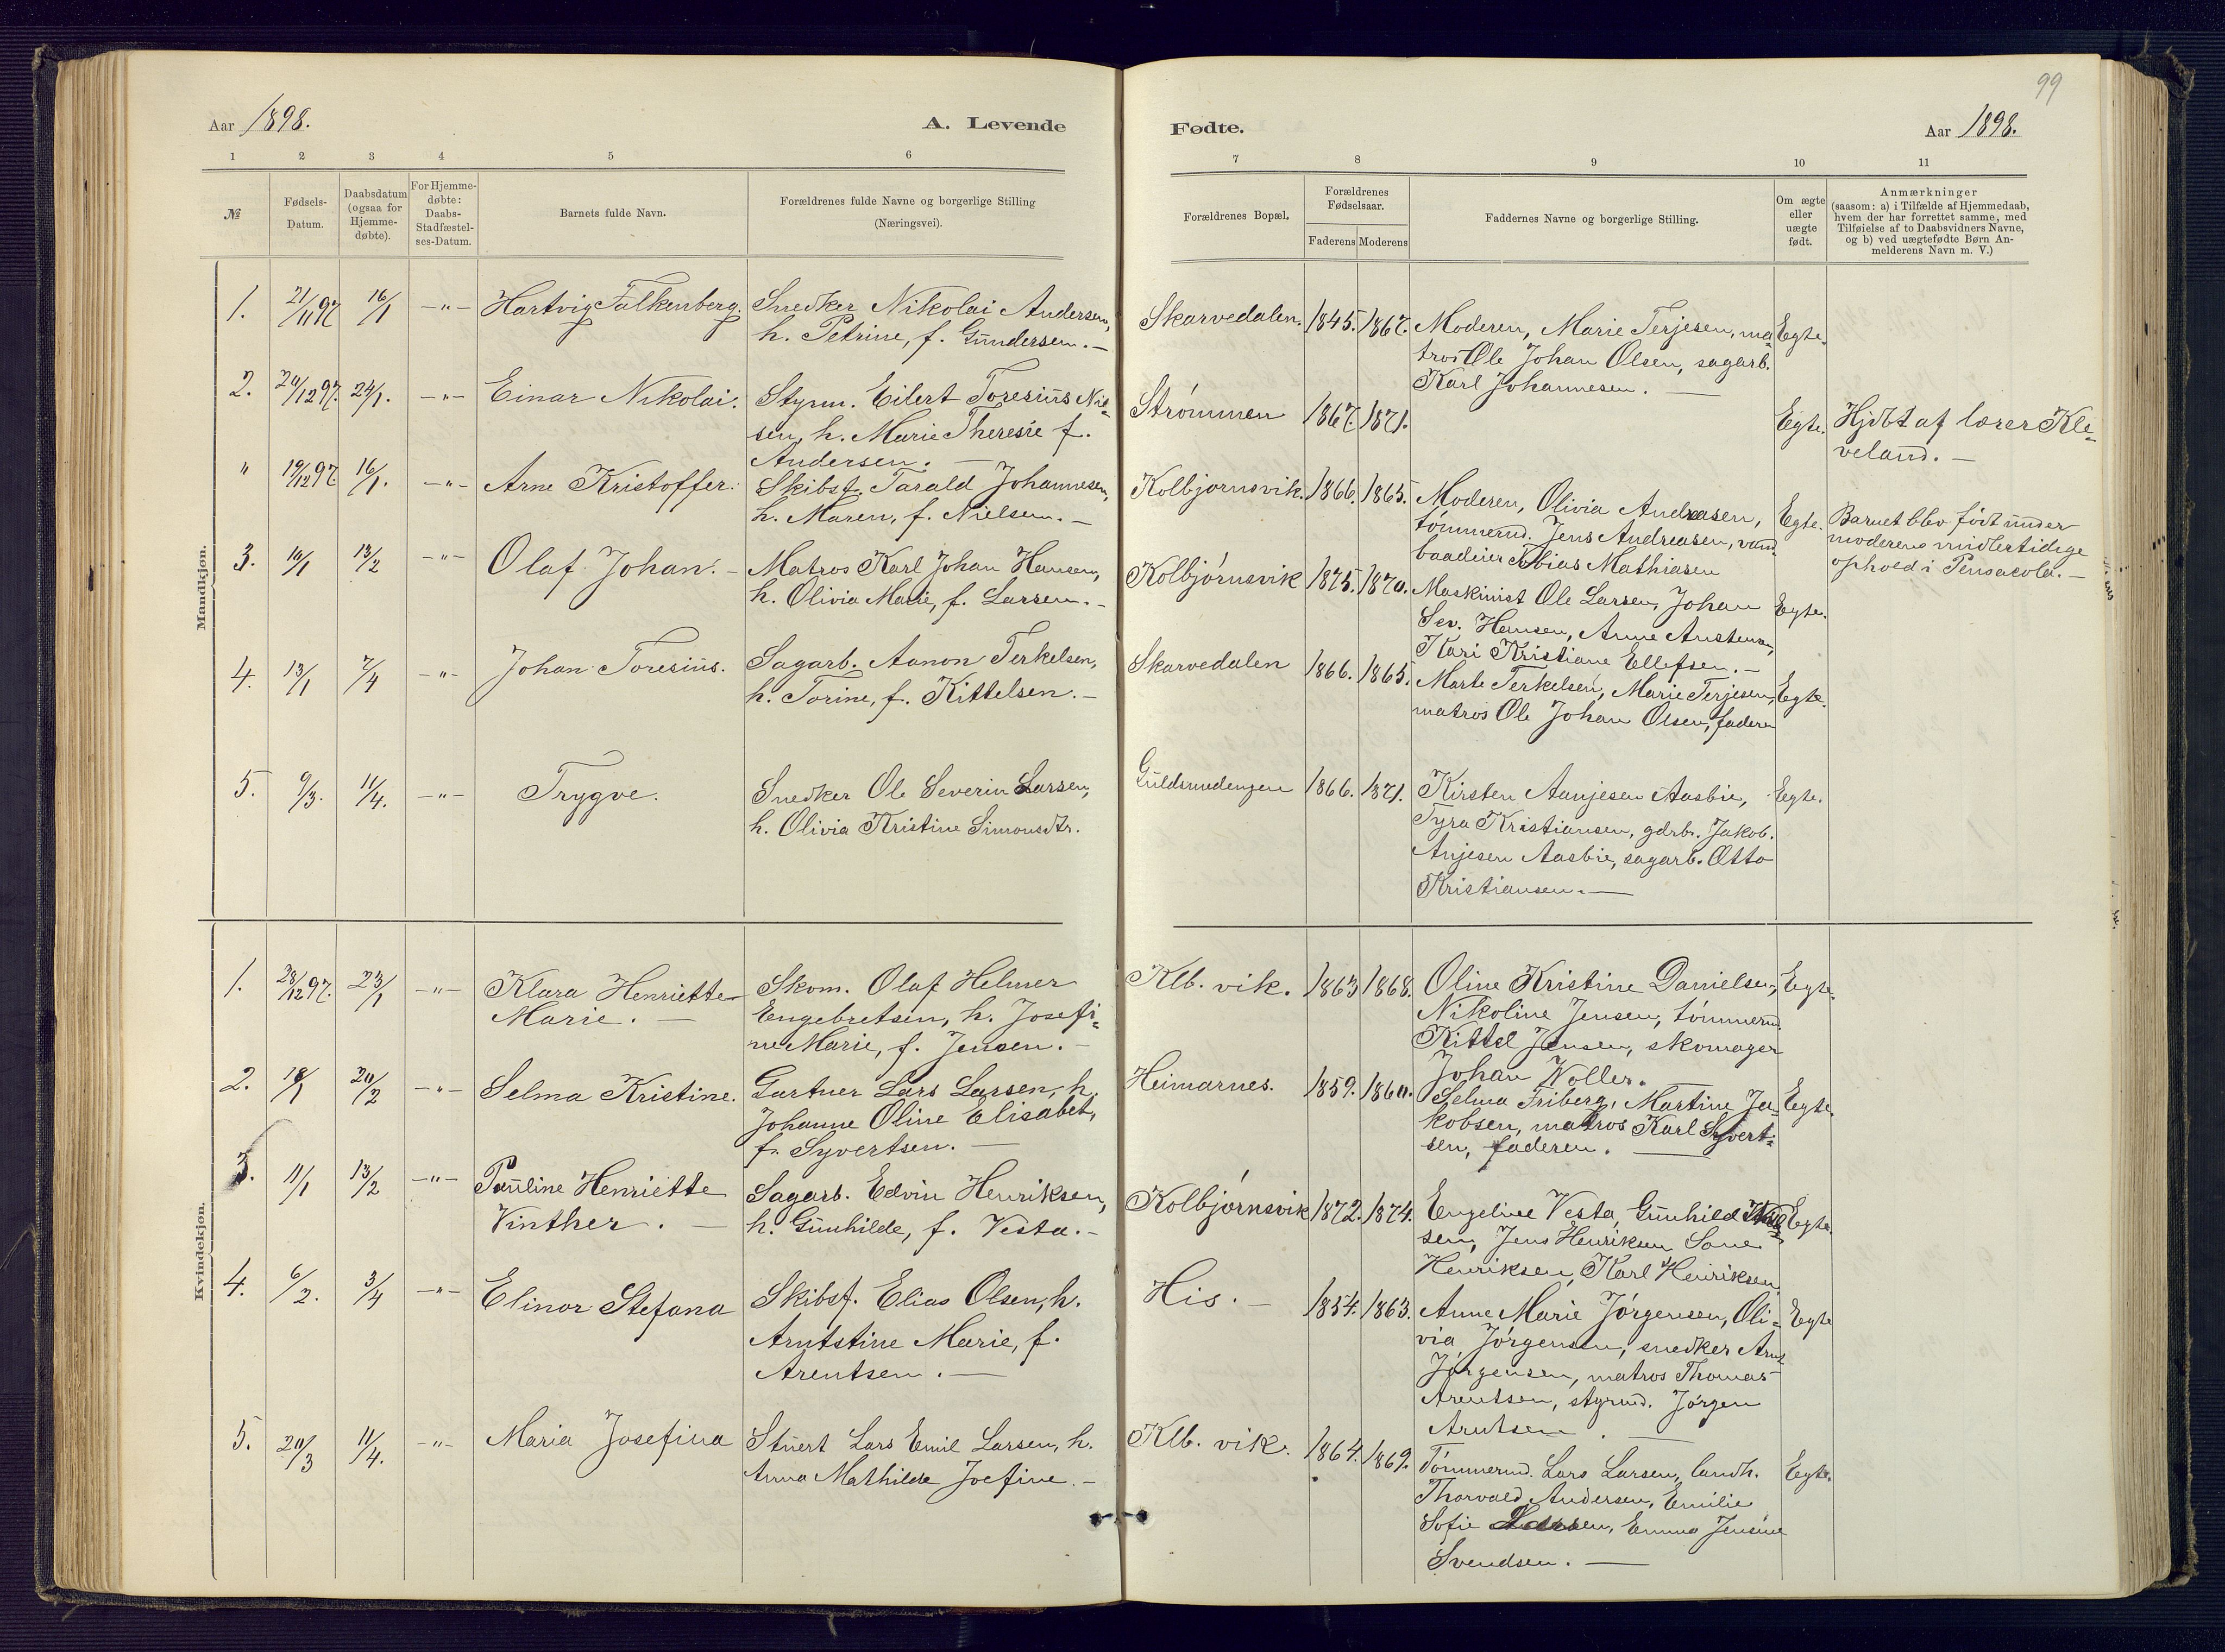 99
Aar 1898.
A. Levende
Fødte.
Aar 1898.
1 2 3 4 5 6
7 8 9 10 11
№
Fødsels-
Datum.
Daabsdatum
(ogsaa for
Hjemme-
døbte).
For Hjemme-
døbte:
Daabs-
Stadfæstel-
ses-Datum.
Barnets fulde Navn.
Forældrenes fulde Navne og borgerlige Stilling
(Næringsvei).
Forældrenes Bopæl.
Forældrenes
Fødselsaar.
Faderens Moderens
Faddernes Navne og borgerlige Stilling.
Om ægte
eller
uægte
født.
Anmærkninger
(saasom: a) i Tilfælde af Hjemmedaab,
hvem der har forrettet samme, med
Tilføielse af to Daabsvidners Navne,
og b) ved uægtefødte Børn An-
melderens Navn m. V.)
Mandkjøn.
1. 21/11 97 16/1 -"- Hartvig Falkenberg.
Snedker Nikolai Andersen,
h. Petrine, f. Gundersen. -
Skarvedalen. 1845. 1867.
Moderen, Marie Terjesen, ma-
tros Ole Johan Olsen, sagarb.
Karl Johannesen. -
Egte.
2. 20/12 97. 24/1. -"- Einar Nikolai.
Styrm. Eilert Toresius Nil-
sen, h. Marie Theresie f.
Andersen. -
Strømmen 1867. 1871.
Egte.
Hjdbt af lærer Kle-
veland. -
" 19/12 97. 16/1. -"- Arne Kristoffer.
Skibsf. Tarald Johannesen,
h. Maren, f. Nielsen. -
Kolbjørnsvik. 1866. 1865.
Moderen, Olivia Andreasen,
tømmermd. Jens Andreasen, vand
baadeier Tobias Mathiasen
Egte.
Barnet blev født under
moderens midlertidige
ophold i Pensacola. -
3. 10/1 13/2 -"- Olaf Johan. -
Matros Karl Johan Hansen,
h. Olivia Marie, f. Larsen. -
Kolbjørnsvik 1875. 1870.
Maskinist Ole Larsen, Johan
Sev. Hansen, Anne Austensen,
Kari Kristiane Ellefsen. -
Egte.
4. 13/1 7/4 -"- Johan Toresius.
Sagarb. Aanon Terkelsen,
h. Torine, f. Kittelsen. -
Skarvedalen 1866. 1865.
Marte Terkelsen, Marie Terjesen,
matros Ole Johan Olsen, faderen
Egte.
5. 9/3. 11/4. -"- Trygve.
Snedker Ole Severin Larsen,
h. Olivia Kristine Simonsdtr.
Guldsmedengen 1866. 1871.
Kirsten Aanjesen Aasbie,
Tyra Kristiansen, gdrb. Jakob
Anjesen Aasbie, sagarb. Otto
Kristiansen. -
Egte.
Kvindekjøn.
1. 28/12 97. 23/1 -"- Klara Henriette
Marie. -
Skom. Olaf Helmer
Engebretsen, h. Josefi-
ne Marie, f. Jensen. -
Klb. vik. 1863 1868.
Oline Kristine Danielsen,
Nikoline Jensen, tømmermd.
Kittel Jensen, skomager
Johan Woller.
Egte.
2. 18/1 20/2 -"- Selma Kristine.
Gartner Lars Larsen, h.
Johanne Oline Elisabet,
f. Syvertsen. -
Heimarnes. 1859. 1860.
Selma Friberg, Martine Ja-
kobsen, matros Karl Syvert-
sen, faderen. -
Egte.
3. 11/1 13/2 -"- Pauline Henriette
Vinther. -
Sagarb. Edvin Henriksen,
h. Gunhilde, f. Vesta. -
Kolbjørnsvik 1872. 1874.
Engeline Vesta, Gunhild
sen, Jens Henriksen
Henriksen, Karl Henriksen
Egte.
4. 6/2. 3/4 -"- Elinor Stefana
Skibsf. Elias Olsen, h.
Arntstine Marie, f.
Arentsen. -
His. - 1854. 1863.
Anne Marie Jørgensen, Oli-
via Jørgensen, snedker Arnt
Jørgensen, matros Thomas
Arentsen, styrmd. Jørgen
Arntsen. -
Egte
5. 20/3 11/4. -"- Maria Josefina
Stuert Lars Emil Larsen, h.
Anna Mathilde Joefine. -
Klb. vik. 1864. 1869.
Tømmermd. Lars Larsen, landh.
Thorvald Andersen, Emilie
Sofie Larsen, Emma Jensine
Svendsen. -
Egte.